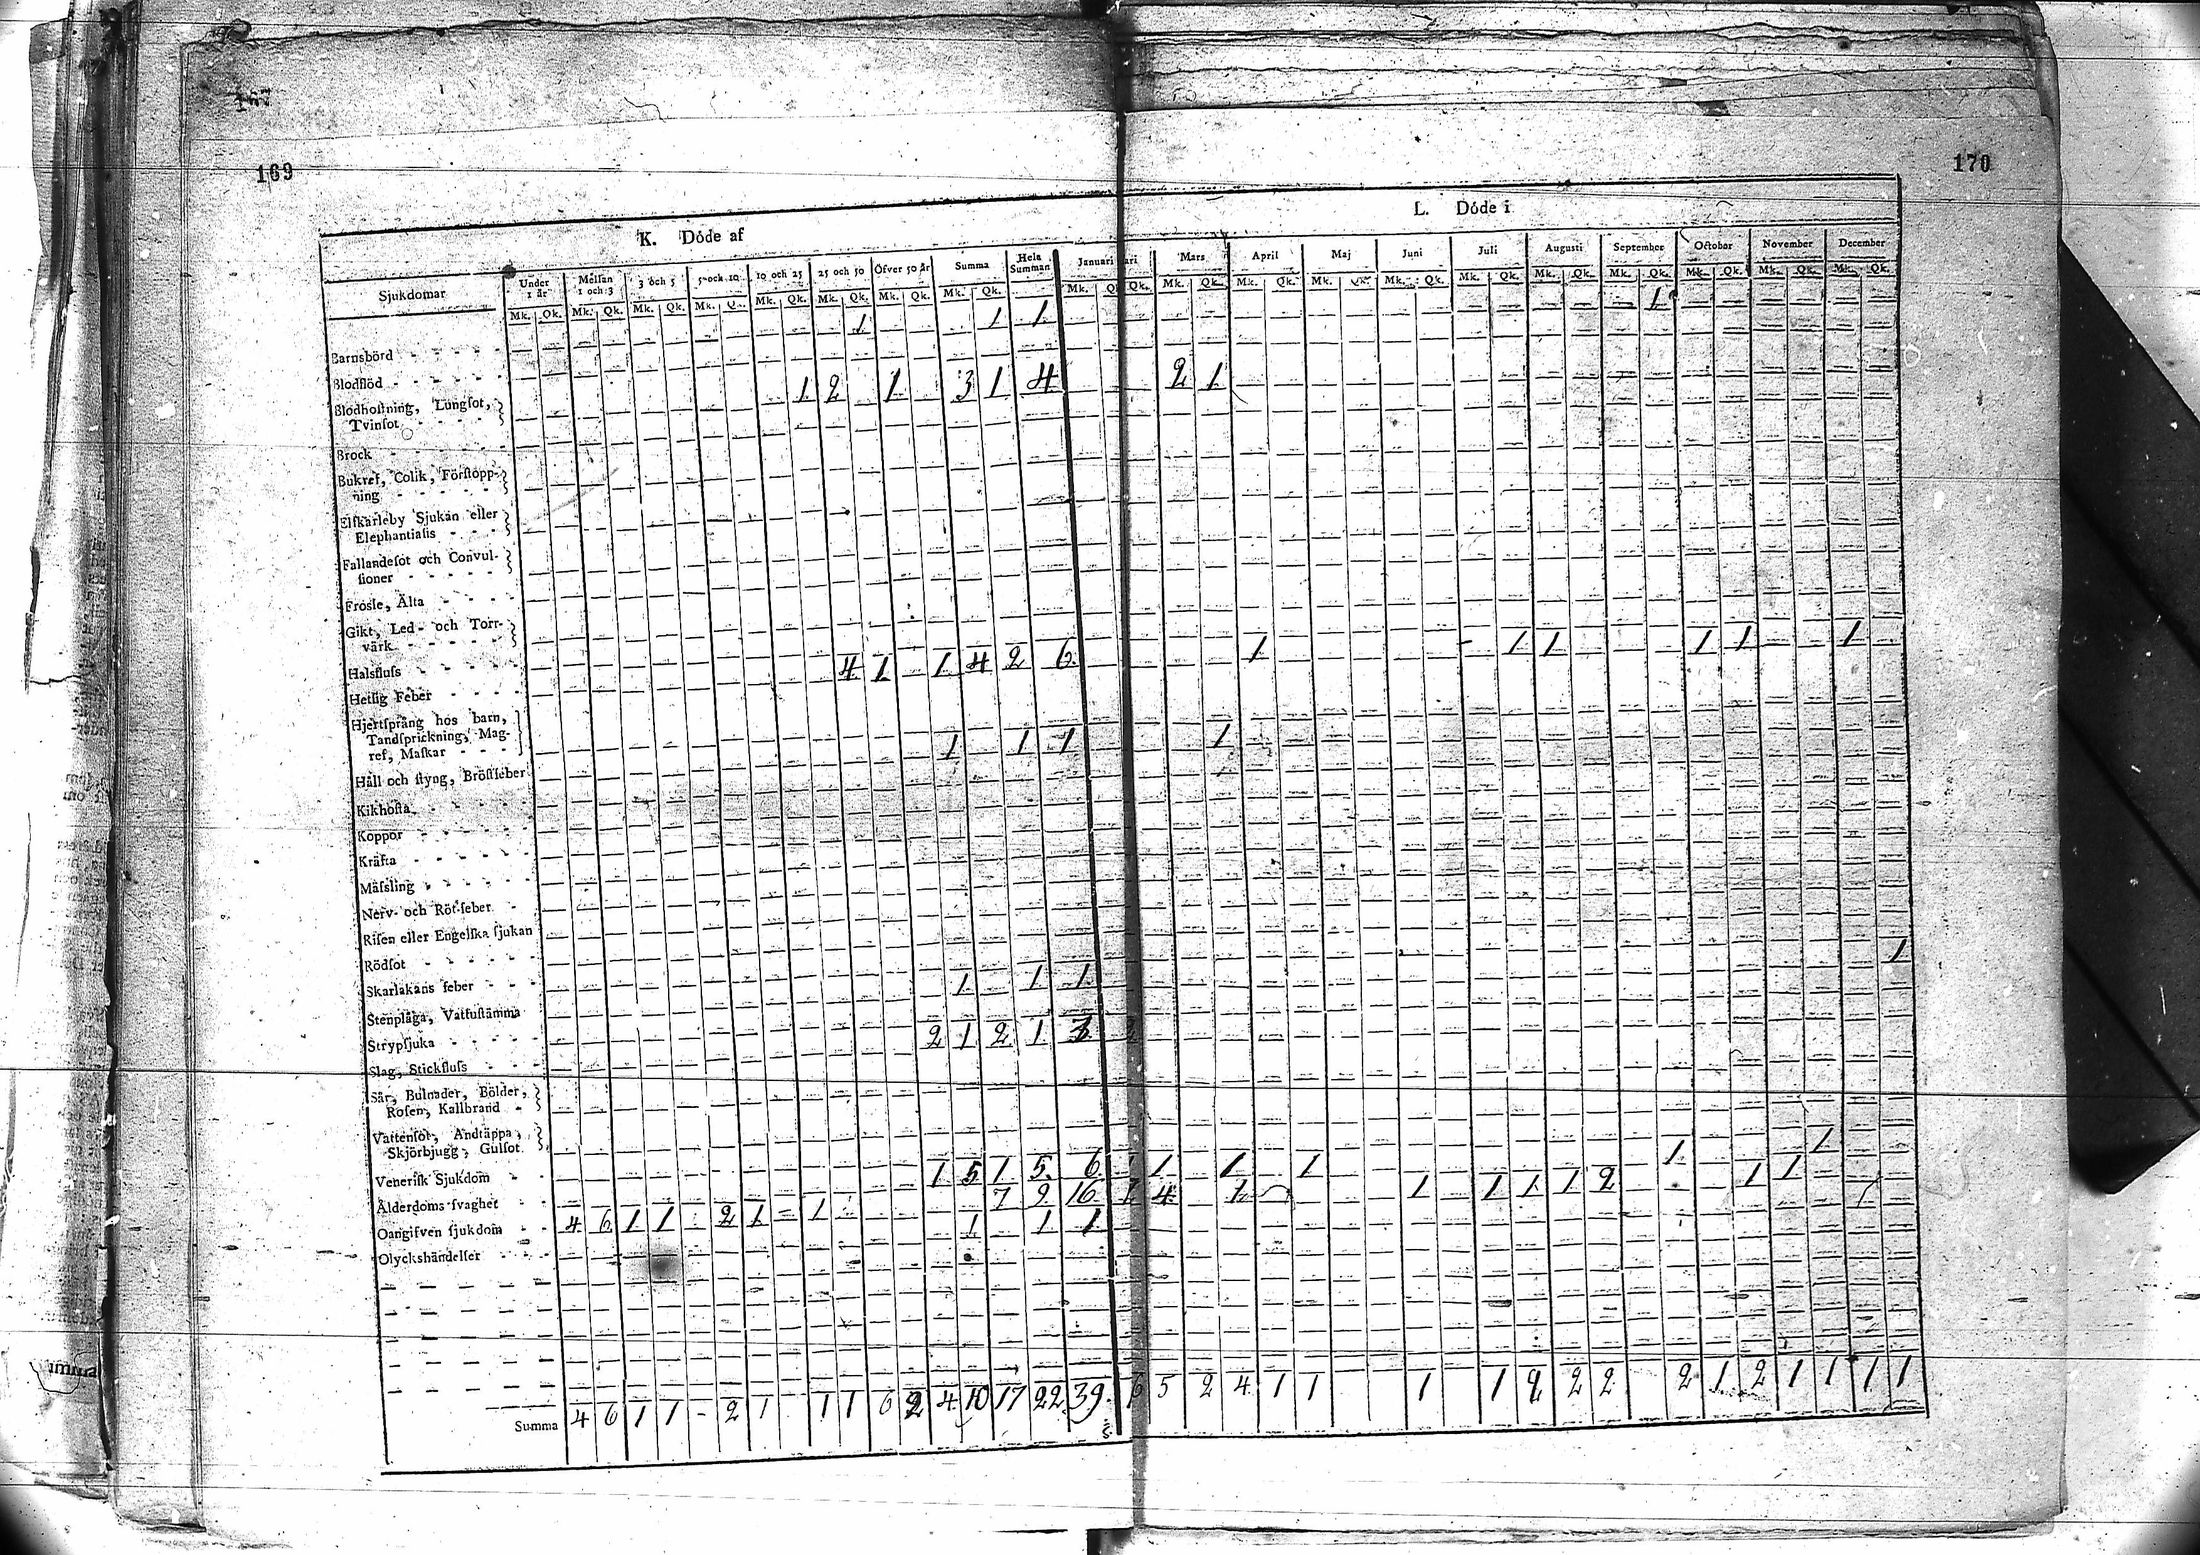 169
170
K. Döde af
L. Döde i
Sjukdomar Under 1 år Mellan 1 och 3 3 och 5 5 och 10 10 och 25 25 och 50 Öfver 50 år Summa Hela Summan Januari Mars April Maj Juni Juli Augusti September October November December
Mk. Qk. Mk. Qk. Mk. Qk. Mk. Qk. Mk. Qk. Mk. Qk. Mk. Qk. Mk. Qk. Mk. Qk. Mk. Qk. Mk. Qk. Mk. Qk. Mk. Qk. Mk. Qk. Mk. Qk. Mk. Qk. Mk. Qk. Mk. Qk. Mk. Qk.
Barnsbörd 1 1 1 1
Blodflöd
Blodhostning, Lungsot, Tvinsot 1 2 1 3 1 4 2 1
Brock
Bukref, Colik, Förstoppning
Elfkarleby Sjukan eller Elephantiasis
Fallandesot och Convulsioner
Frosse, Älta
Gikt, Led- och Torrvärk
Halsfluss
Hetsig Feber 4 1 1 4 2 6 1 1 1 1 1 1
Hjertsprång hos barn, Tandsprickning, Magref, Maskar
Håll och styng, Bröstfeber 1 1 1 1
Kikhosta
Koppor
Kräfta
Mässling
Nerv- och Rötfeber
Risen eller Engelska sjukan
Rödsot
Skarlakans feber
Stenplåga, Vattustämma 1 1 1 1
Strypsjuka
Slag, Stickfluss 2 1 2 1 3 2
Sår, Bulnader, Bölder, Rosen, Kallbrand
Vattensot, Andtäppa, Skjörbjugg, Gulsot
Venerisk Sjukdom
Ålderdoms svaghet 1 5 1 5 6 1 1 1 1 1
Oangifven sjukdom 4 6 1 1 2 1 1 7 9 16 4 1 1 1 1 1 2 1 1
Olyckshändelser 1 1 1
Summa 4 6 1 1 - 2 1 1 1 6 2 4 10 17 22 39 6 5 2 4 1 1 1 1 2 2 2 2 1 2 1 1 1 1